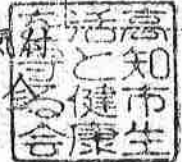 高知市生
活と健康
を守る会
付